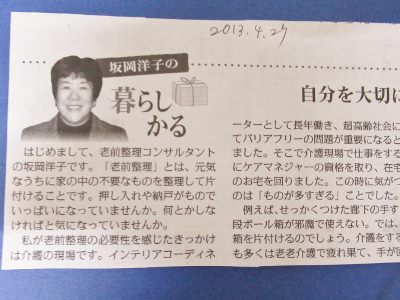 2013.4.27
坂岡洋子の
暮らし
かる
自分を大切に
はじめまして、老前整理コンサルタント
の坂岡洋子です。「老前整理」とは、元気
なうちに家の中の不要なものを整理して片
付けることです。押し入れや納戸がもので
いっぱいになっていませんか。何とかしな
ければと気になっていませんか。
私が老前整理の必要性を感じたきっかけ
は介護の現場です。インテリアコーディネ
ーターとして長年働き、超高齢社会に
てバリアフリーの問題が重要になると
ました。そこで介護現場で仕事をする
にケアマネジャーの資格を取り、在宅
のお宅を回りました。この時に気がつ
のは「ものが多すぎる」ことでした。
例えば、せっかくつけた廊下の手す
段ボール箱が邪魔で使えない。では、
箱を片付けるのでしょう。介護をする
も多くは老老介護で疲れ果て、手が回